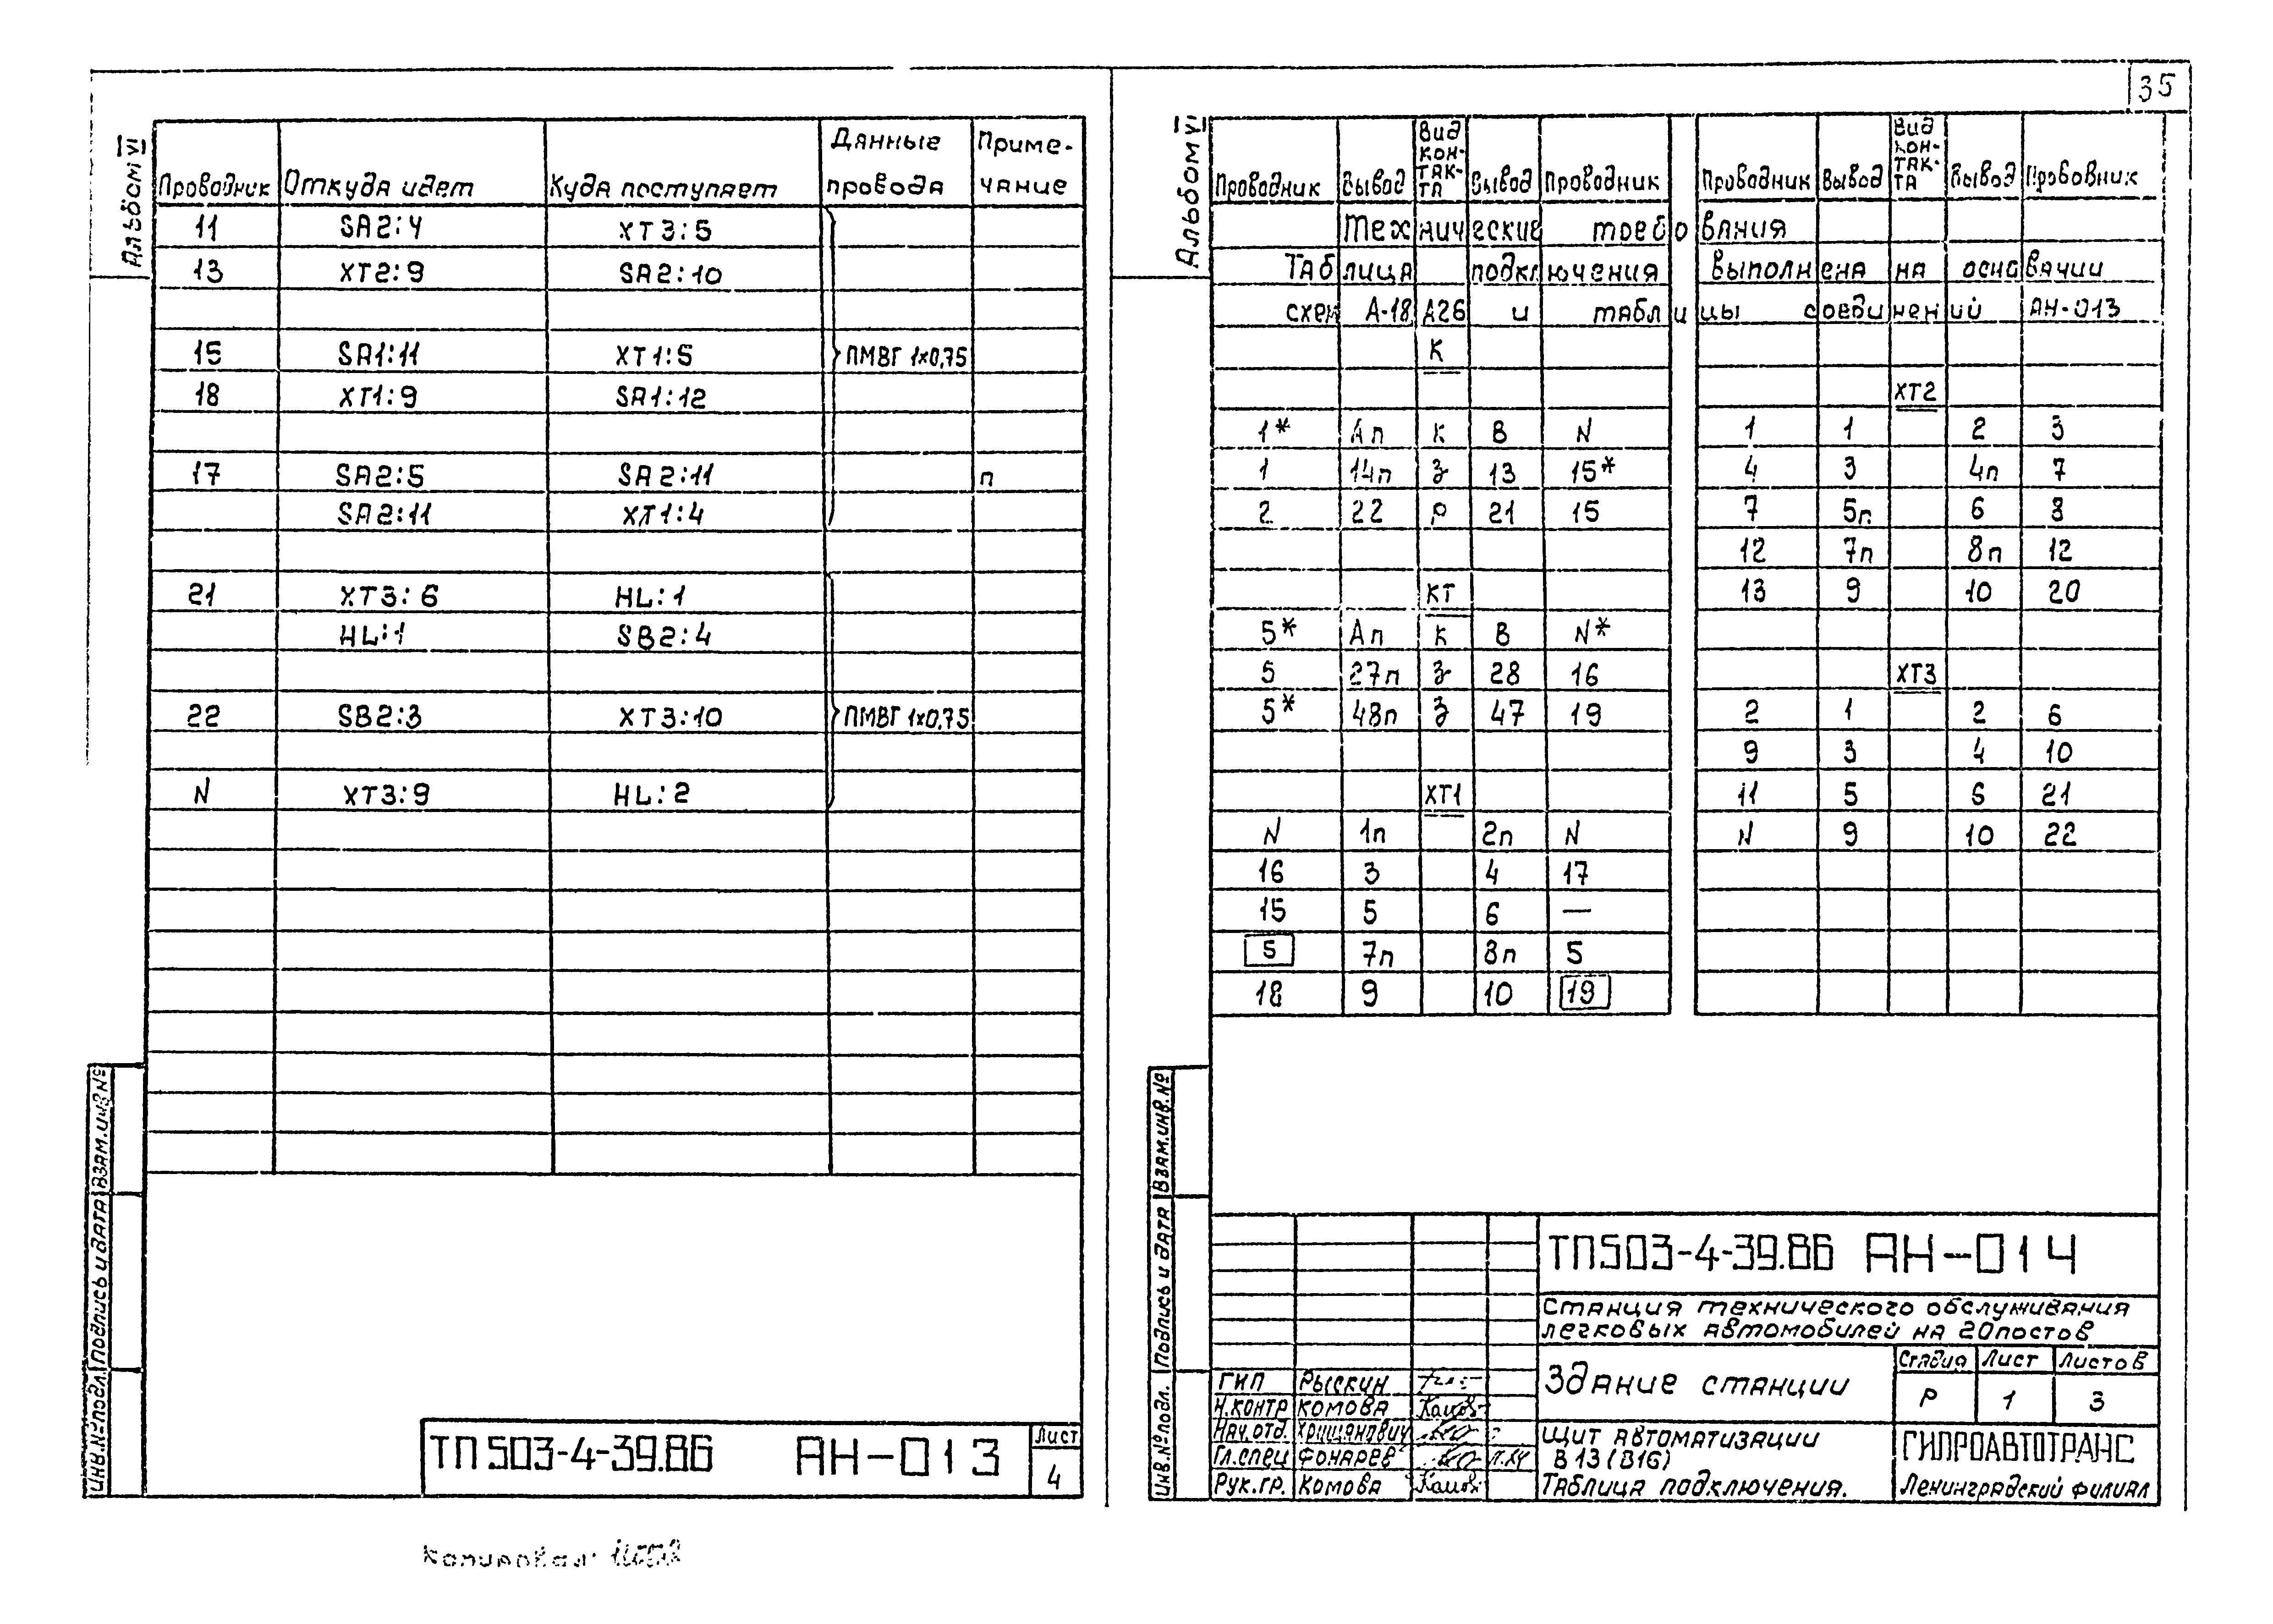 35
Альбом VI
Проводник Откуда идет Куда поступает Данные провода Примечание
11 SA2:4 XT3:5
13 XT2:9 SA2:10
15 SA1:11 XT1:5 ПМВГ 1х0,75
18 XT1:9 SA1:12
17 SA2:5 SA2:11 п
SA2:11 XT1:4
21 XT3:6 HL:1
HL:1 SB2:4
22 SB2:3 XT3:10 ПМВГ 1х0,75
N XT3:9 HL:2
Инв.№подл. Подпись и дата Взам.инв.№
ТП503-4-39.86 АН-013
Лист
4
Альбом VI
Проводник Вывод Вид контакта Вывод Проводник
Проводник Вывод Вид контакта Вывод Проводник
Технические требования
Таблица подключения выполнена на основании
схем А-18, А26 и таблицы соединений АН-013
К
1* Ап к В N
1 14п з 13 15*
2 22 р 21 15
КТ
5* Ап к В N*
5 27п з 28 16
5* 48п з 47 19
XT1
N 1п 2п N
16 3 4 17
15 5 6 —
5 7п 8п 5
18 9 10 19
XT2
1 1 2 3
4 3 4п 7
7 5п 6 8
12 7п 8п 12
13 9 10 20
XT3
2 1 2 6
9 3 4 10
11 5 6 21
N 9 10 22
Инв.№подл. Подпись и дата Взам.инв.№
ТП503-4-39.86 АН-014
Станция технического обслуживания
легковых автомобилей на 20постов
Здание станции
Стадия Лист Листов
Р 1 3
ГИП Рыскин
Н.контр Комова
Нач.отд. Хрищанович
Гл.спец Фонарев
Рук.гр. Комова
Щит автоматизации
В13(В16)
Таблица подключения.
ГИПРОАВТОТРАНС
Ленинградский филиал
Копировал: